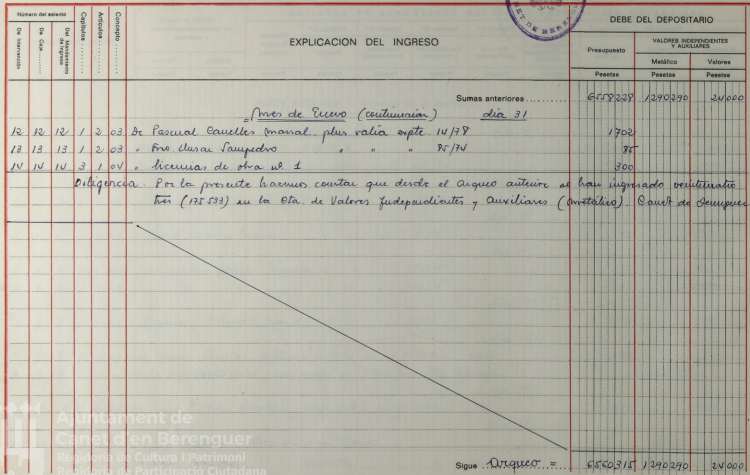 Número del asiento
De Intervención
De Caja
Del Mandamiento de Ingreso
Capítulos
Artículos
Concepto
EXPLICACION DEL INGRESO
DEBE DEL DEPOSITARIO
Presupuesto
VALORES INDEPENDIENTES Y AUXILIARES
Metálico
Valores
Pesetas Pesetas Pesetas
Sumas anteriores 6558228 1290290 24000
= Mes de Enero (continuación) día 31
12 12 12 1 2 03 De Pascual Canelles plus valia expte. 14/78 1702
13 13 13 1 2 03 " Sampedro " " 85/74 85
14 14 14 3 1 04 " licencias de obra nº 1 300
Diligencia. Por la presente hacemos constar que desde el arqueo anterior se han ingresado
tres (175.533) en la Cta. de Valores Independientes y Auxiliares (metálico). Canet de Berenguer
Sigue Arqueo = 6560315 1290290 24000
Ajuntament de
Canet d'en Berenguer
Regidoria de Cultura i Patrimoni
Regidoria de Participació Ciutadana